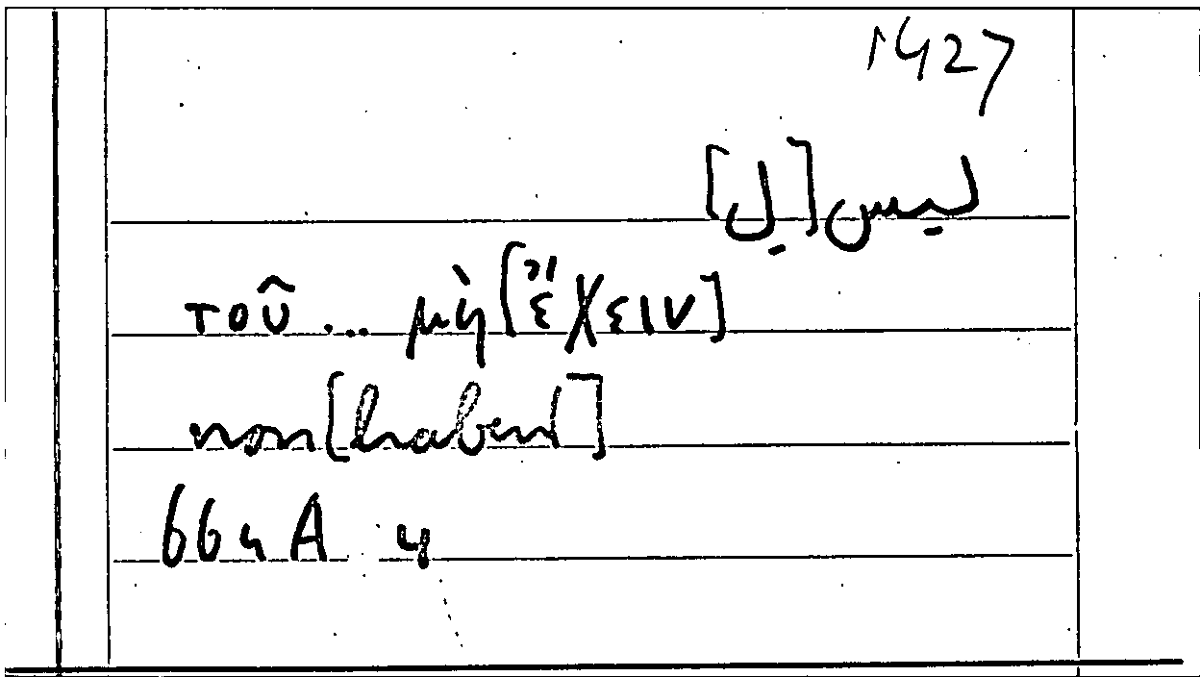 1427
ليس[ل]
τοῦ ... μὴ [ἔχειν]
non [habent]
664 A 4